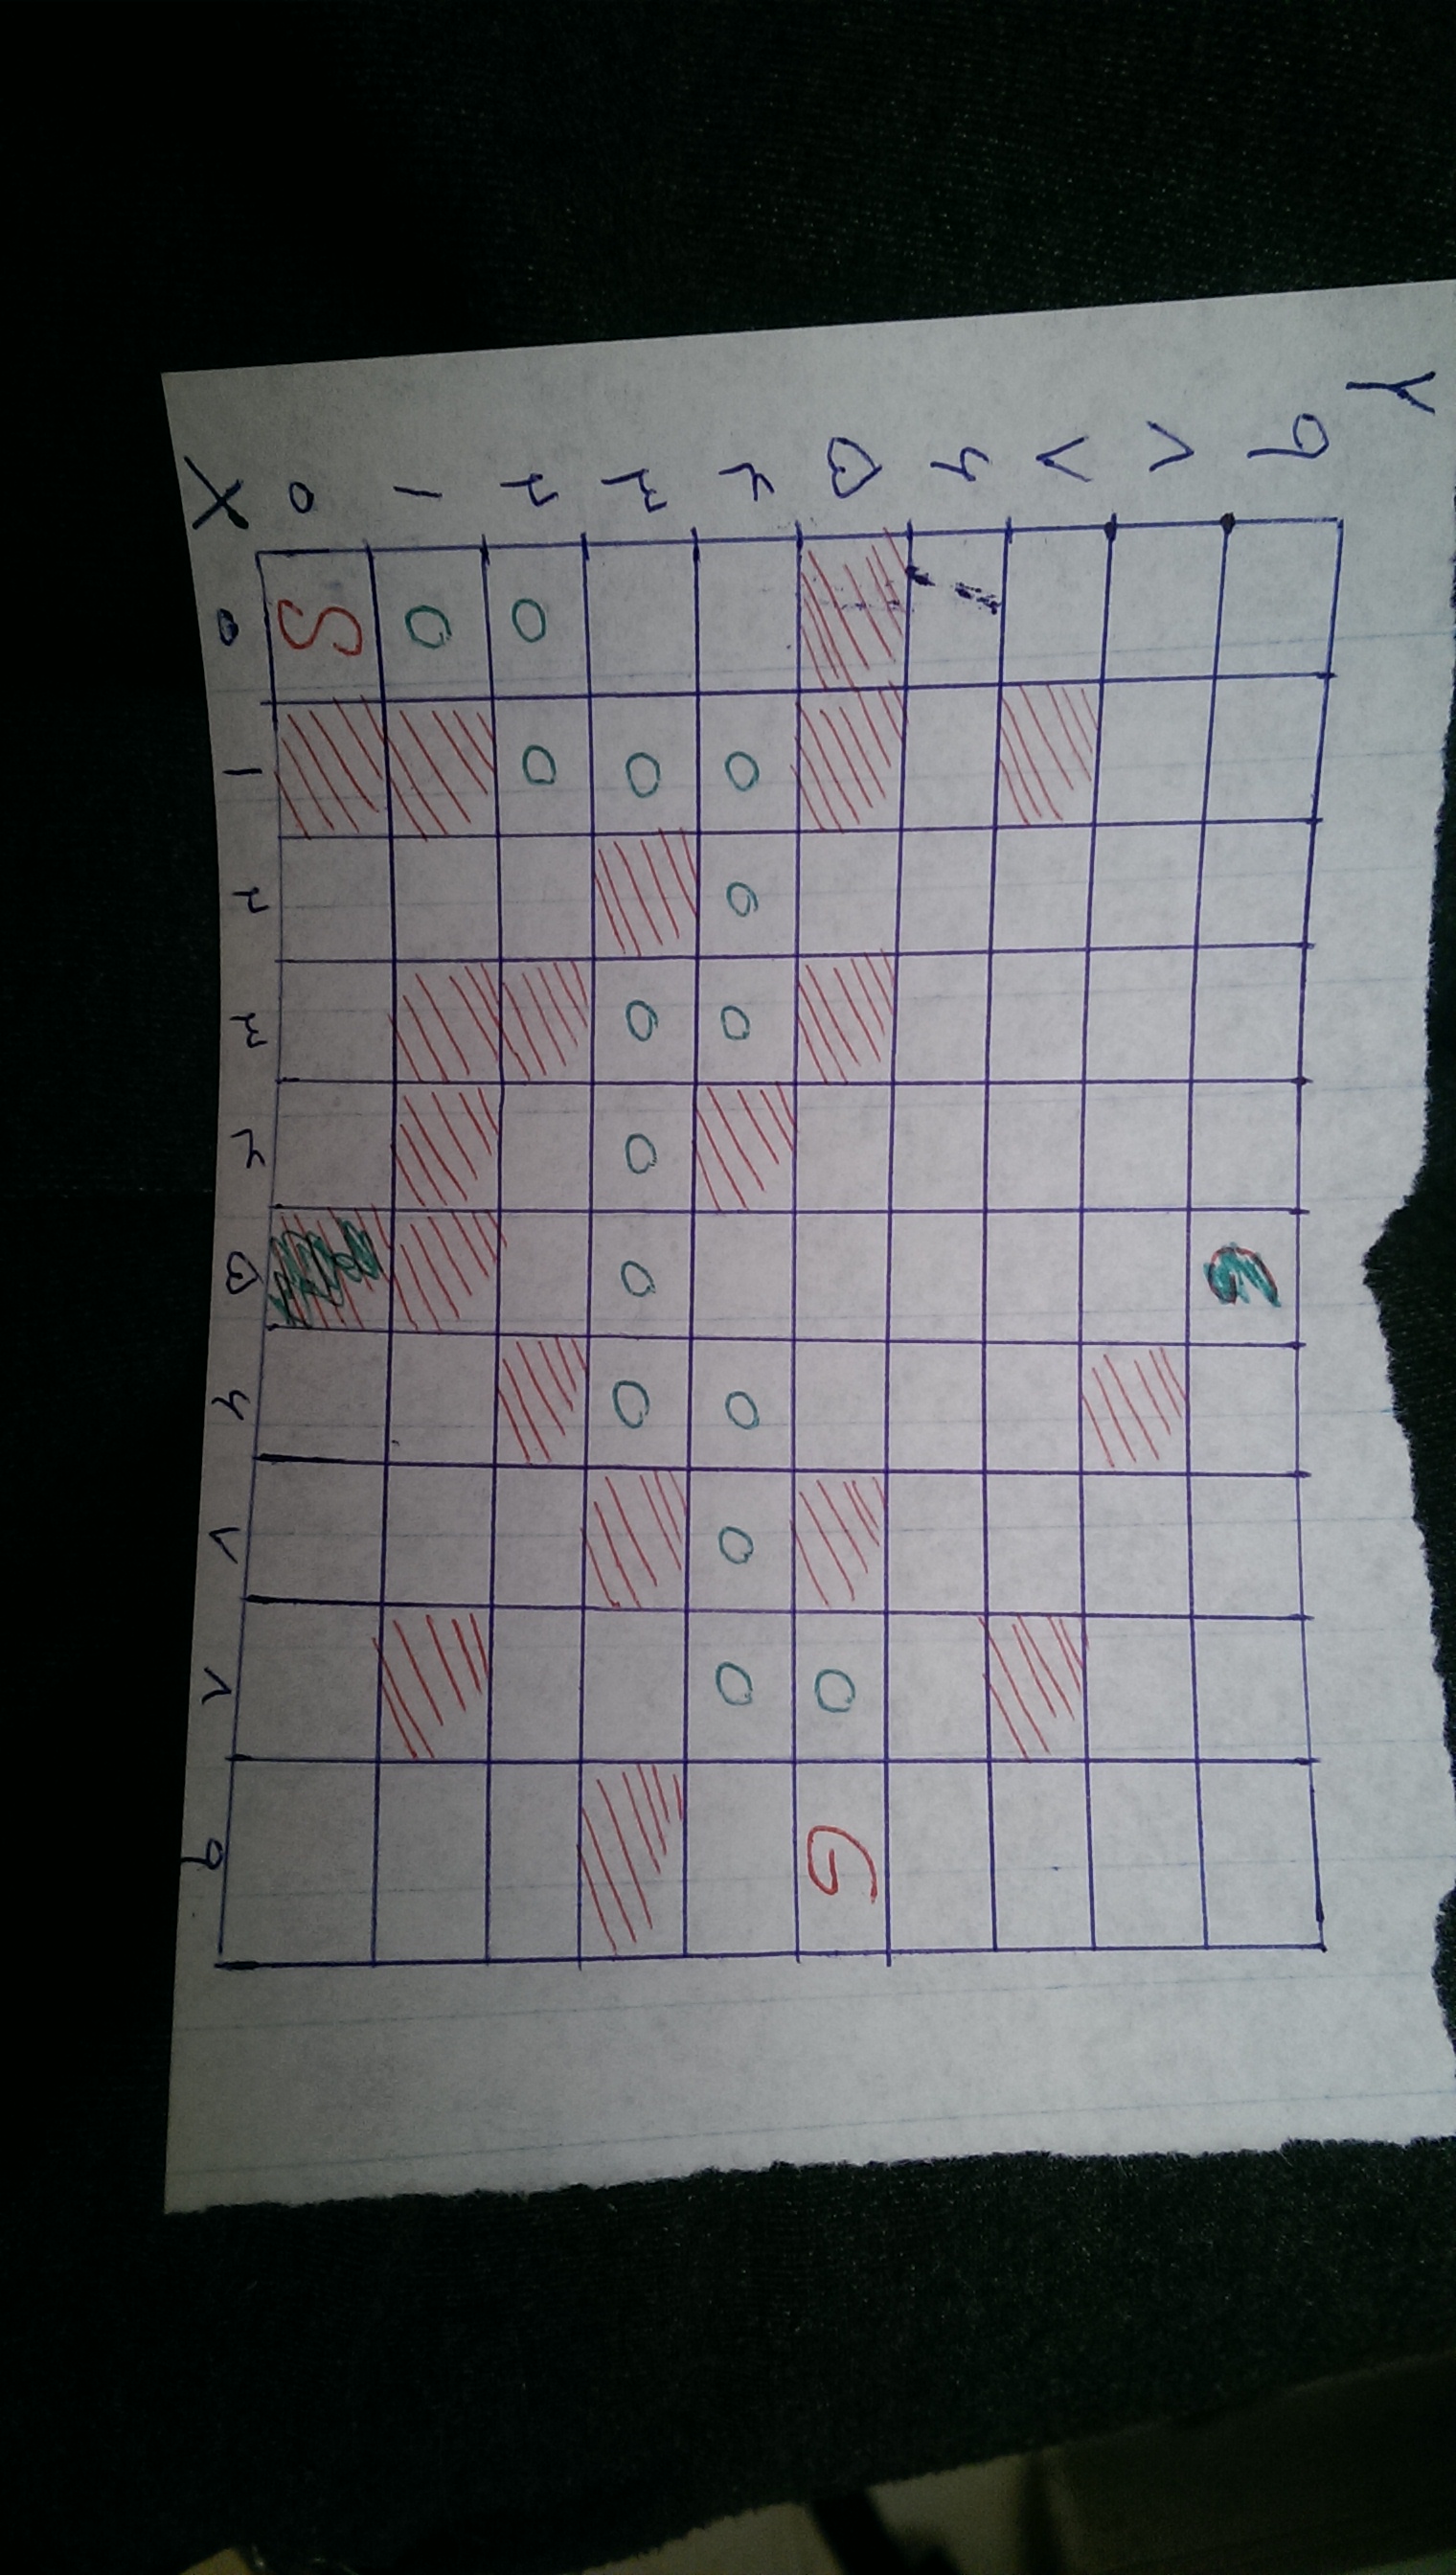 Y
۹ G
۸
۷
۶
۵ O G
۴ O O O O O O
۳ O O O O O
۲ O O
۱ O
۰ S
X ۰ ۱ ۲ ۳ ۴ ۵ ۶ ۷ ۸ ۹